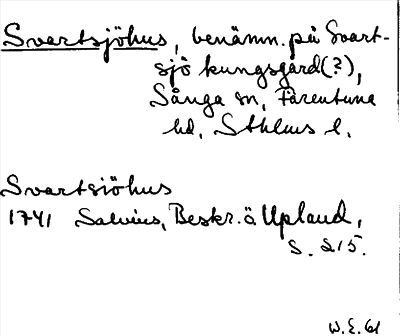 Svartsjöhus, benämn. på Svart-
sjö kungsgård(?),
Sånga sn, Färentuna
hd, Sthlms l.
Svartsiöhus
1741 Salvius, Beskr. ö Upland,
s. 215.
W.E. 61